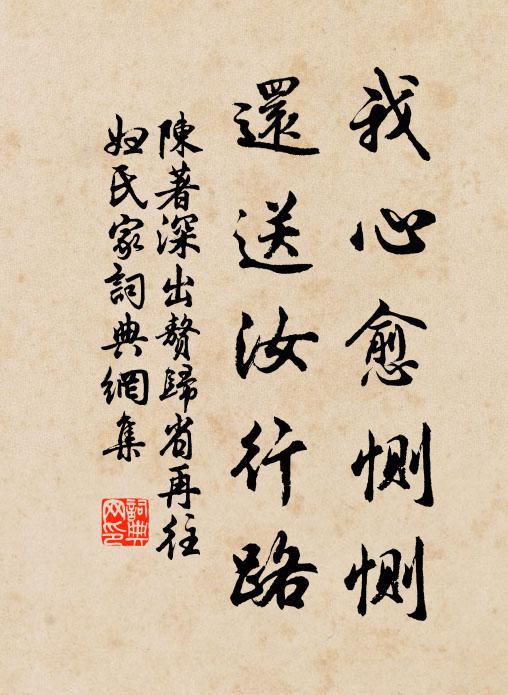 我心愈惻惻
還送汝行路
陳著深出贅歸省再往
妞氏家詞典網集
詞典网印